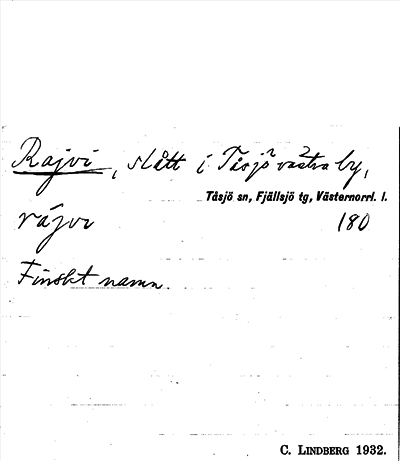 Rajvi, slått i Tåsjö västra by,
Tåsjö sn, Fjällsjö tg, Västernorrl. l.
råjvı 180
Finskt namn.
C. LINDBERG 1932.